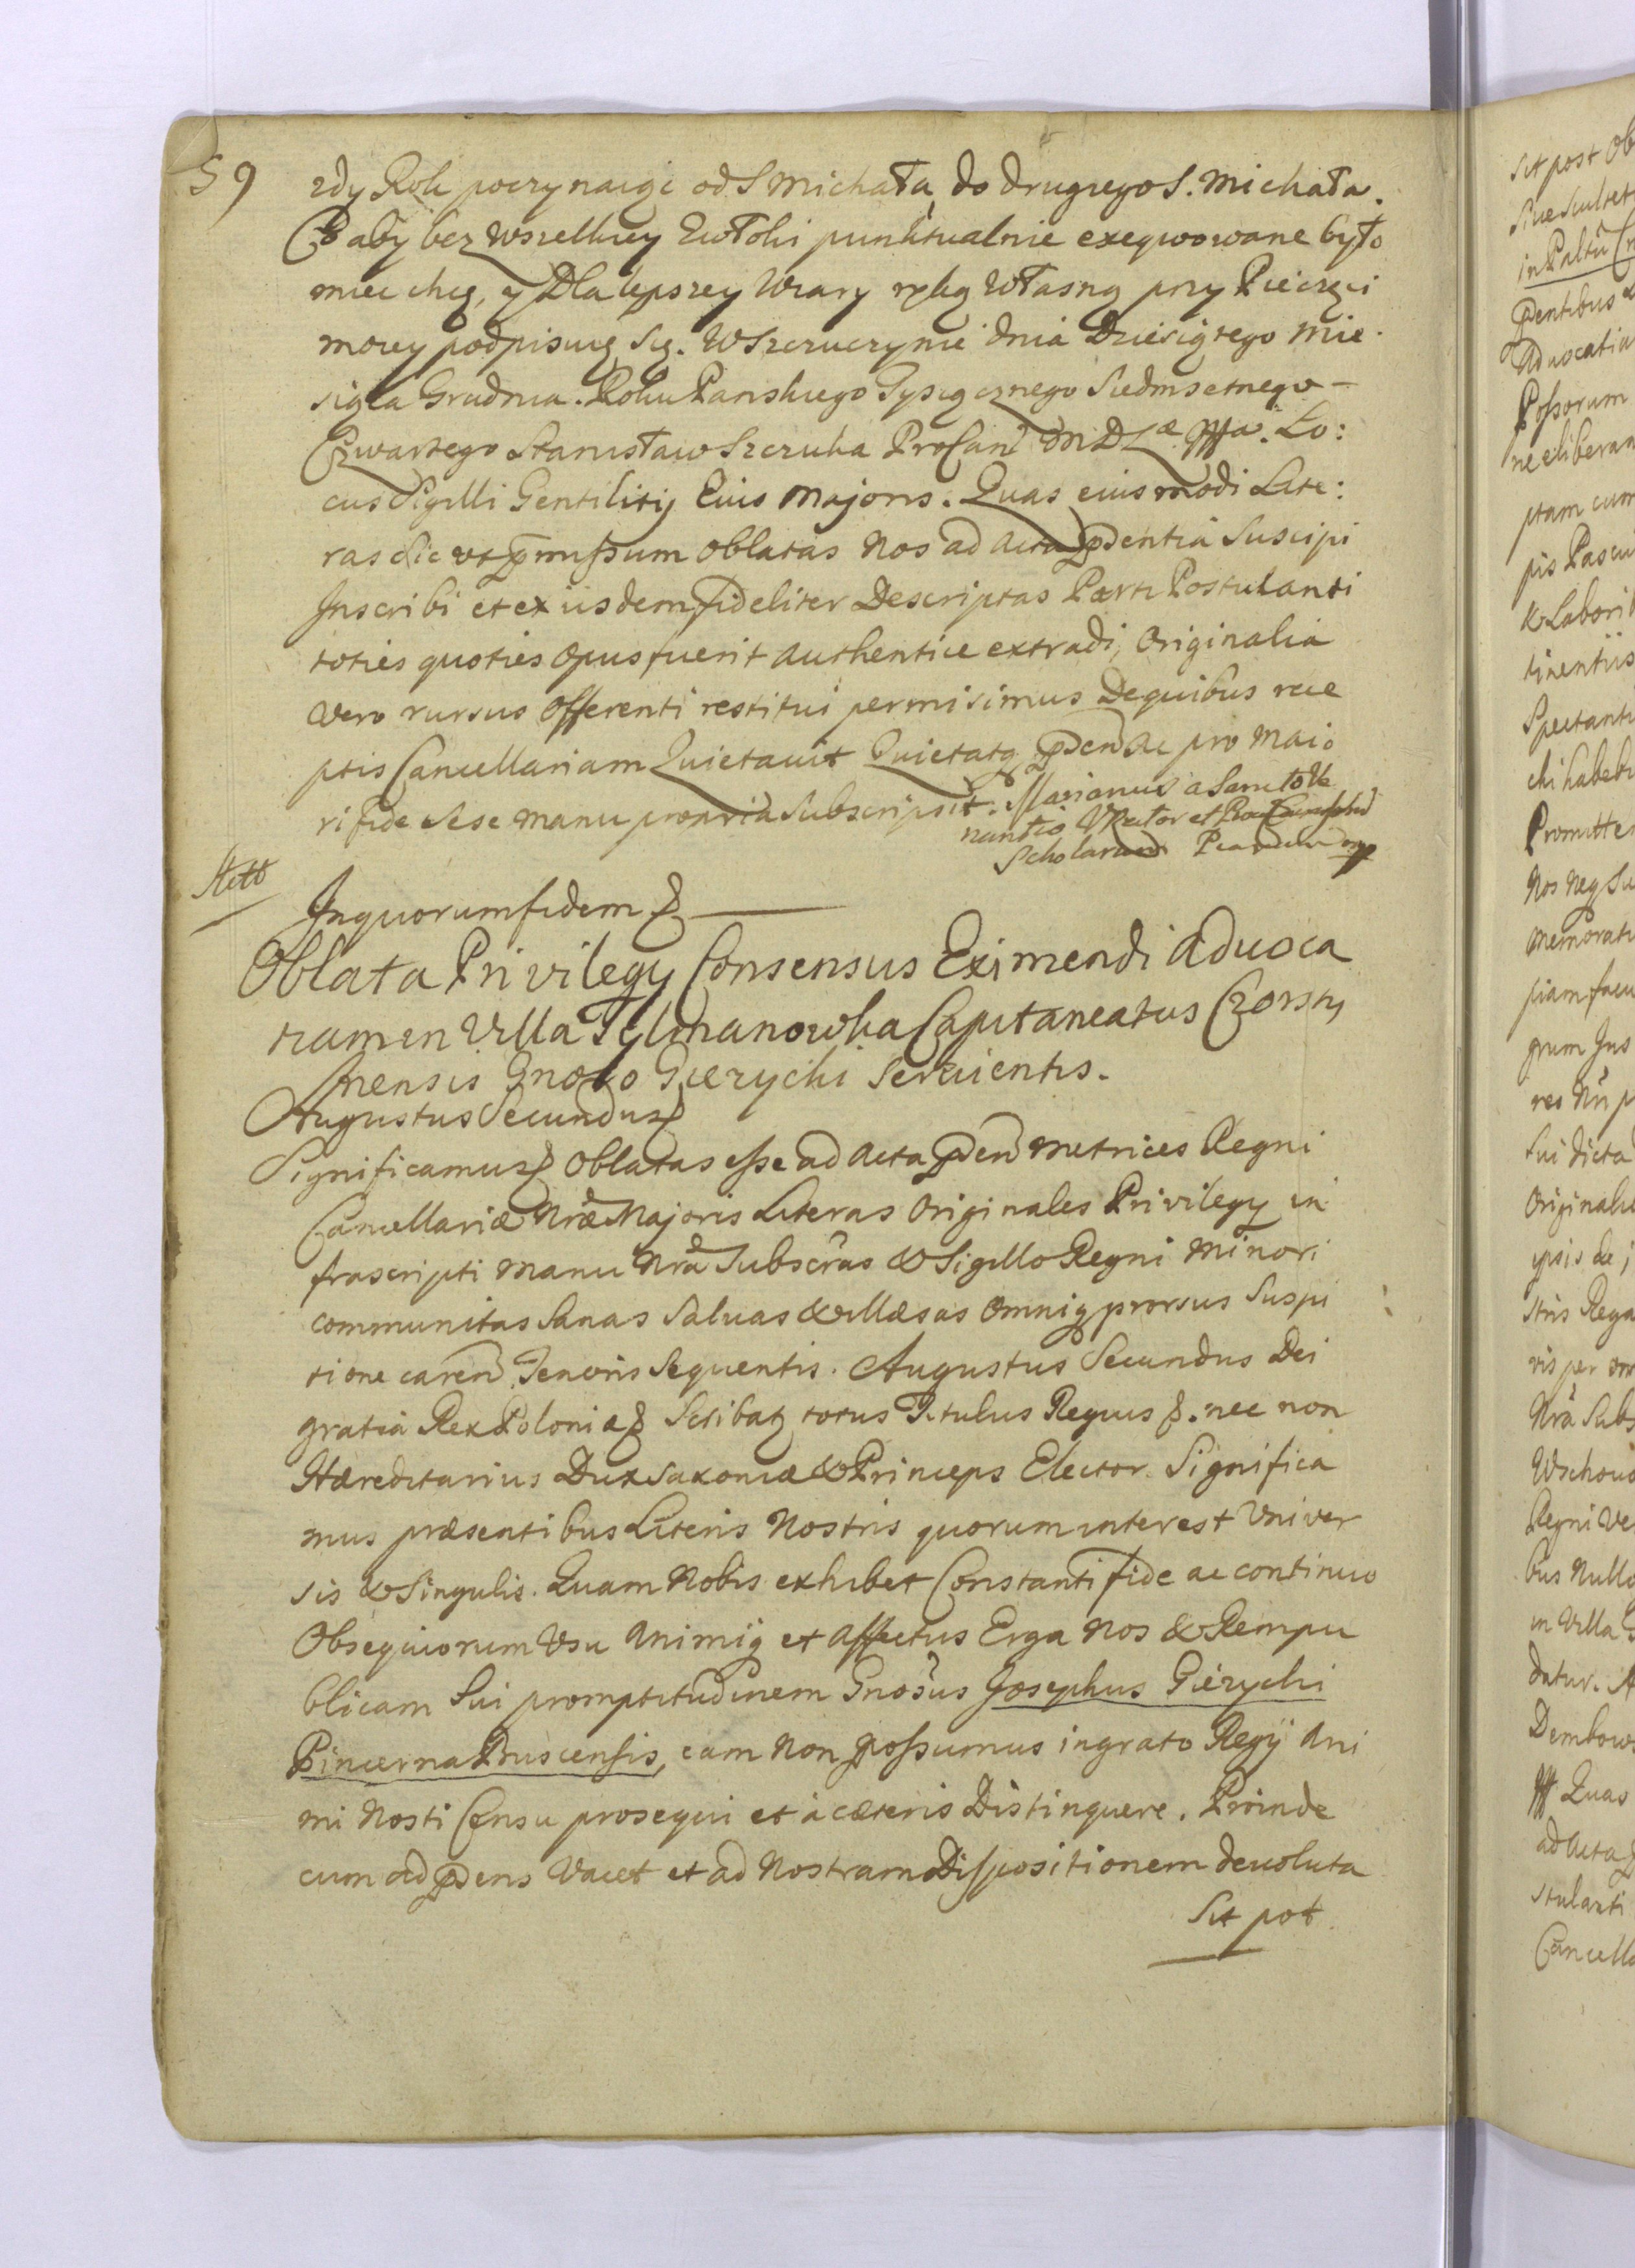 59
zdy Rok poczynaiąc od S Michała do drugiego S. Michała.
Co aby bez wszelkiey Zwłoki punktualnie exeqwowane było
miec chcę, y Dla lepszey Wiary ręką Własną przy Pieczęci
moiey podpisuię Się. W Szczuczynie dnia Dziesiątego Mie
siąca Grudnia. Roku Panskiego Tysiącznego Siedmsetnego –
Czwartego Stanisław Szczuka ProCanć M D L æ mpa. Lo:
cus Sigilli Gentilitij Eius Majoris. Quas eiusmodi Lite:
ras Sic ut præmissum oblatas Nos ad Acta pñdentia Suscipi
Inscribi et ex iisdem fideliter Descriptas Parti Postulanti
toties quoties Opus fuerit authentice extradi, Originalia
vero rursus Offerenti restitui permisimus De quibus rece
ptis Cancellariam Quietavit Quietatq pñden Ac pro Maio
ri fide Sese manu propria Subscripsit. Marianus a Sancto Ve
nantio Rector et
Scholarum Piarum mp
In quorum fidem &
Oblata Privilegy Consensus Eximendi Advoca
tiam in Villa Tylmanowka Capitaneatus Czorsty
nensis Gnoso Gierycki Servientis.
Augustus Secundus &
Significamus & Oblatas esse ad Acta pñden Metrices Regni
Cancellariæ Nræ Majoris Literas Originales Privilegy in
frascripti Manu Nra Subscras & Sigillo Regni Minori
communitas Sanas Salvas & illæsas Omniq prorsus Suspi
tione caren Tenoris Sequentis. Augustus Secundus Dei
gratia Rex Poloniæ & Scribatq totus Titulus Regius &. nec non
Hæreditarius Dux Saxoniæ & Princeps Elector. Significa
mus præsentibus Literis Nostris quorum interest Univer
sis & Singulis. Quam Nobis exhibet Constanti fide ac continuo
Obsequiorum Usu Animiq et Affectus Erga Nos & Rempu
blicam Sui promptitudinem Gnosus Josephus Gierycki
Pincerna Buscensis, eam Non possumus ingrato Regij Ani
mi Nostri Censu prosequi et à cæteris Distinguere. Proinde
cum ad pñdens Vacet et ad Nostram Dispositionem devoluta
Sit pot
Sit post Ob
in Paltū
Advocatia
Possorum
ne eliberan
ptam cum
pis Pascu
& Labori
tinentiis
Spectanti
Promitte
Nos neq Su
memorati
piam facu
grum Jus
res Nri p
Sui dicta
Originali
ypsis de j
Stris Rega
vis per om
Nra Subs
Wschow
Regni Ve
bus Nullo
in Villa
datur. A
Dembows
Quas
ad Acta
stulanti
Cancella